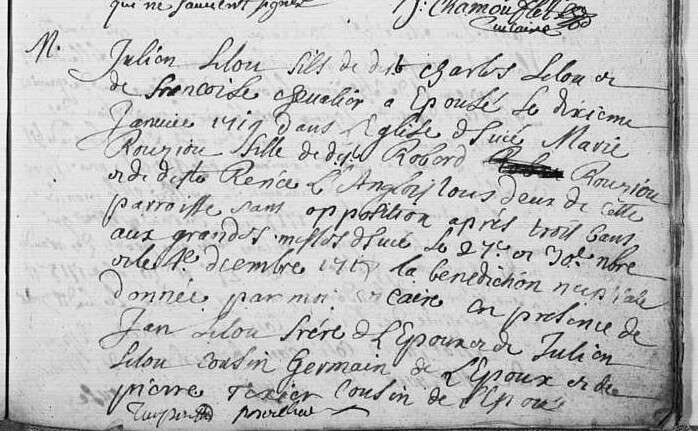 qui ne sauvent signer J: Chamouflet
M.
Julien Lelou fils de dft charles Lelou et
de francoise chevalier a Epousé le dixieme
Janvier dans L'Eglise d'Sucé Marie
Rouziou fille de dft Robard Rouziou
et de dfte Renée L'Anglois tous deux de cette
parroisse sans opposition aprés trois bans
aux grandes messes d'Sucé le 27e et 30e nbre
et le decembre la benediction nuptiale
donnée par moi en presence de
Jan Lelou frére d L'Epoux et de Julien
Lelou cousin Germain de L'Epoux et de
pierre Texier Cousin de L'Epou